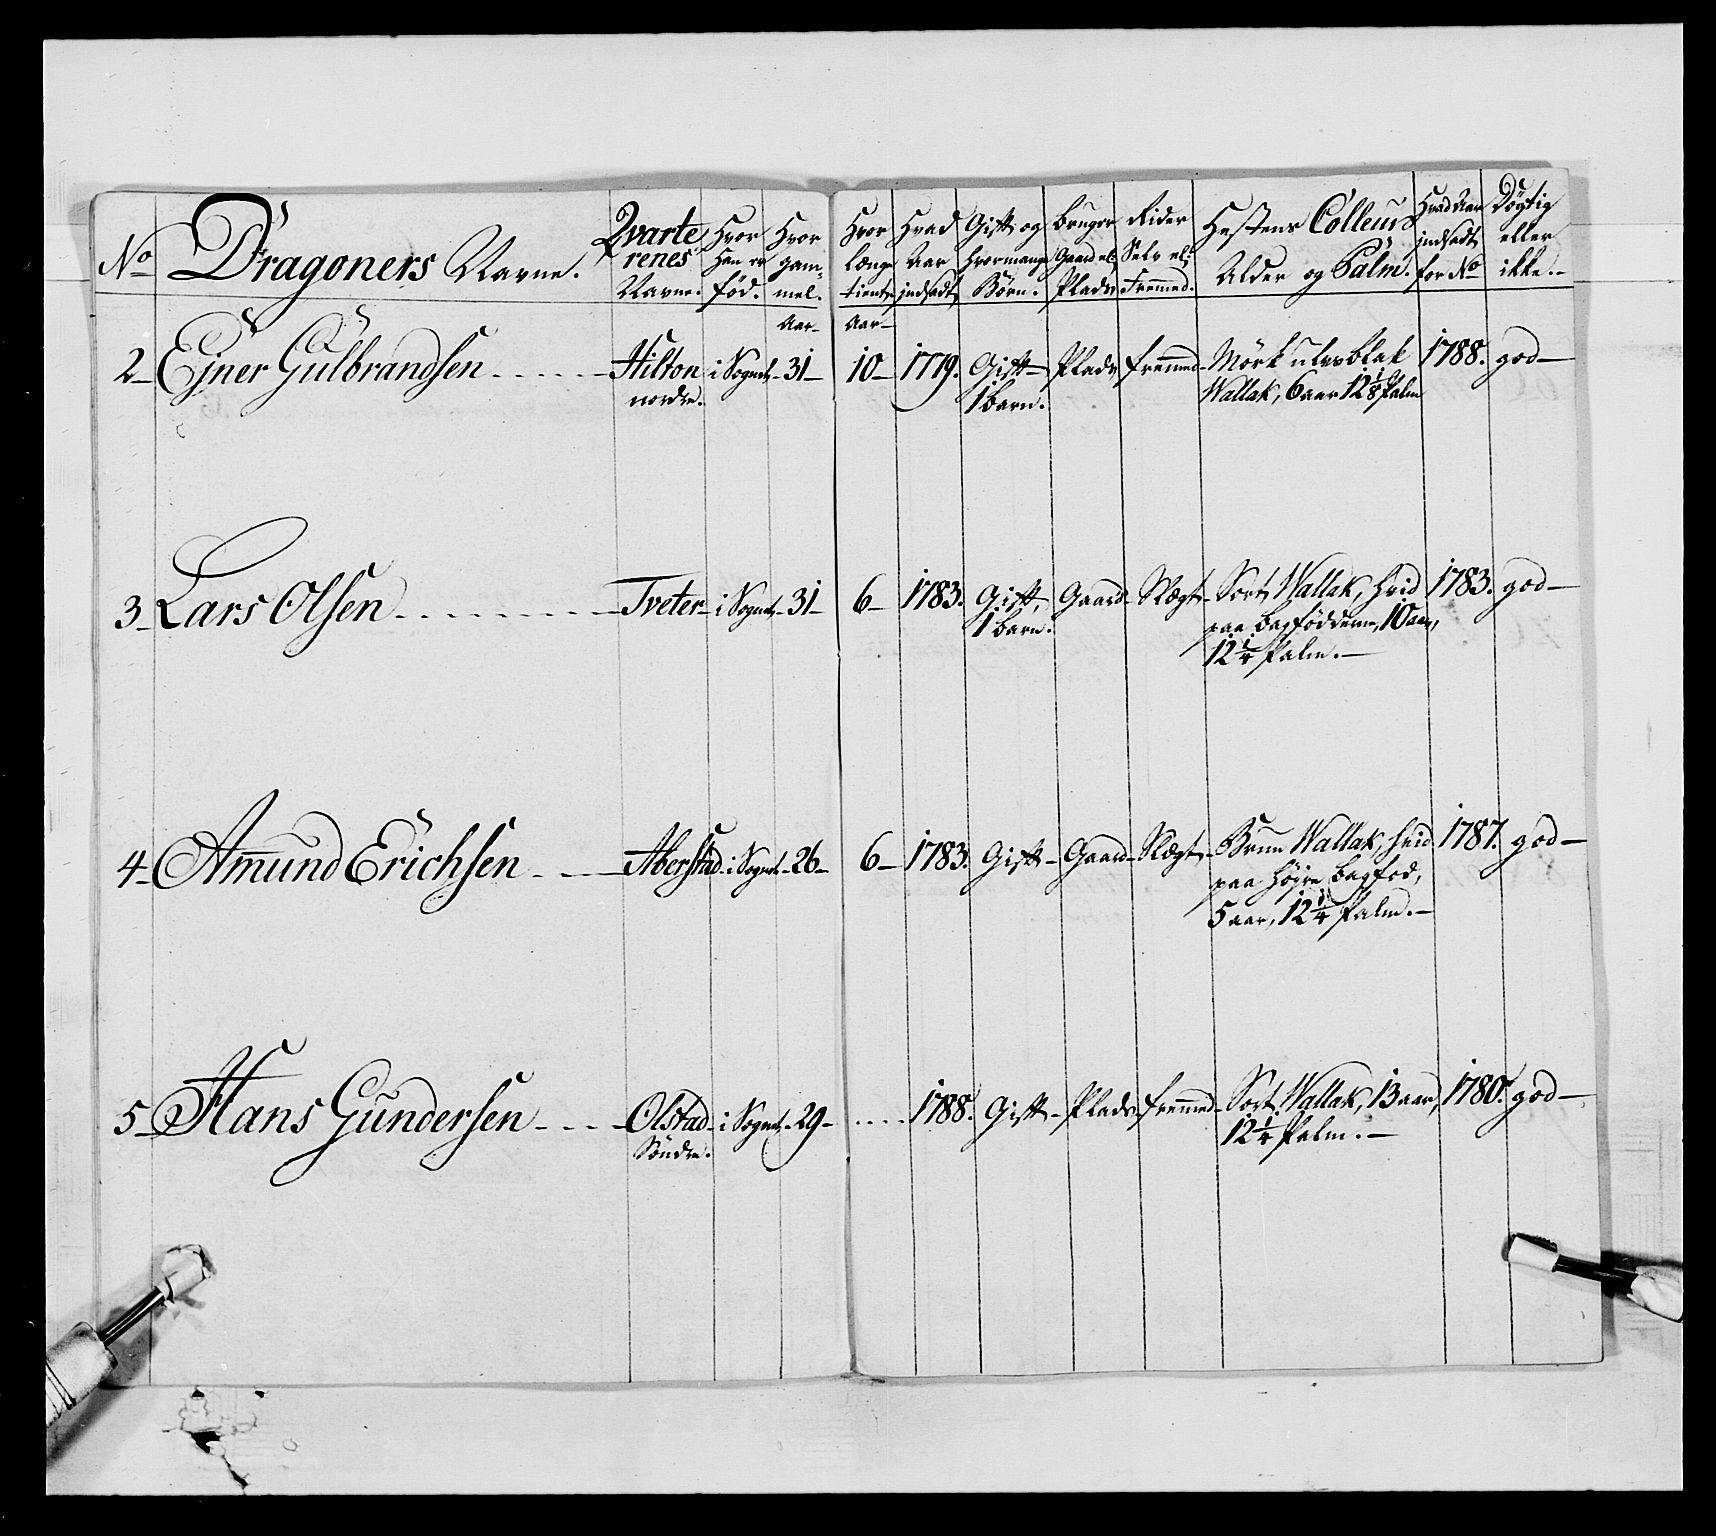 No Dragoners Navne. Qvarterenes Navne. Hvor han er fød. Hvor gammel. Hvor længe tient Hvad Aar indsadt Gift og hvormange Børn. bruger Gaard el: Plads Rider Selv el: Fremmed. Hestens Colleur Alder og Palm. Hvad Aar indsadt for No Døgtig eller ikke.
Aar Aar
2 Ejner Gulbrandsen Hilton i Sognet 31 10 1779. Gift Plads fremmed Mörk ulvsblak 1788. god
nordre. 1 barn. Wallak, 6 aar 12 1/8 Palm
3 Lars Olsen Tveter i Sognet 31 6 1783. Gift, Gaard Slægt Sort Wallak, hvid 1783. god
1 barn. paa bagfödderne, 10 aar,
12 1/4 Palm.
4 Amund Erichsen Aberstad i Sognet 26 6 1783. Gift Gaard Slægt Brun Wallak, hvid 1787. god
paa höyre bagfod,
5 aar, 12 1/4 Palm.
5 Hans Gundersen Olstad i Sognet 29 1788. Gift Plads fremmed Sort Wallak, 13 aar, 1780. god
Söndre. 12 1/4 Palm.